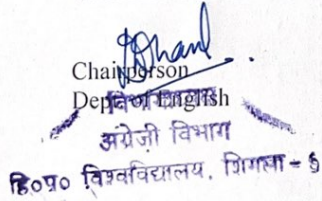 Chairperson
Deptt. of English
विभागाध्यक्ष
अंग्रेज़ी विभाग
हि०प्र० विश्वविद्यालय, शिमला - 5